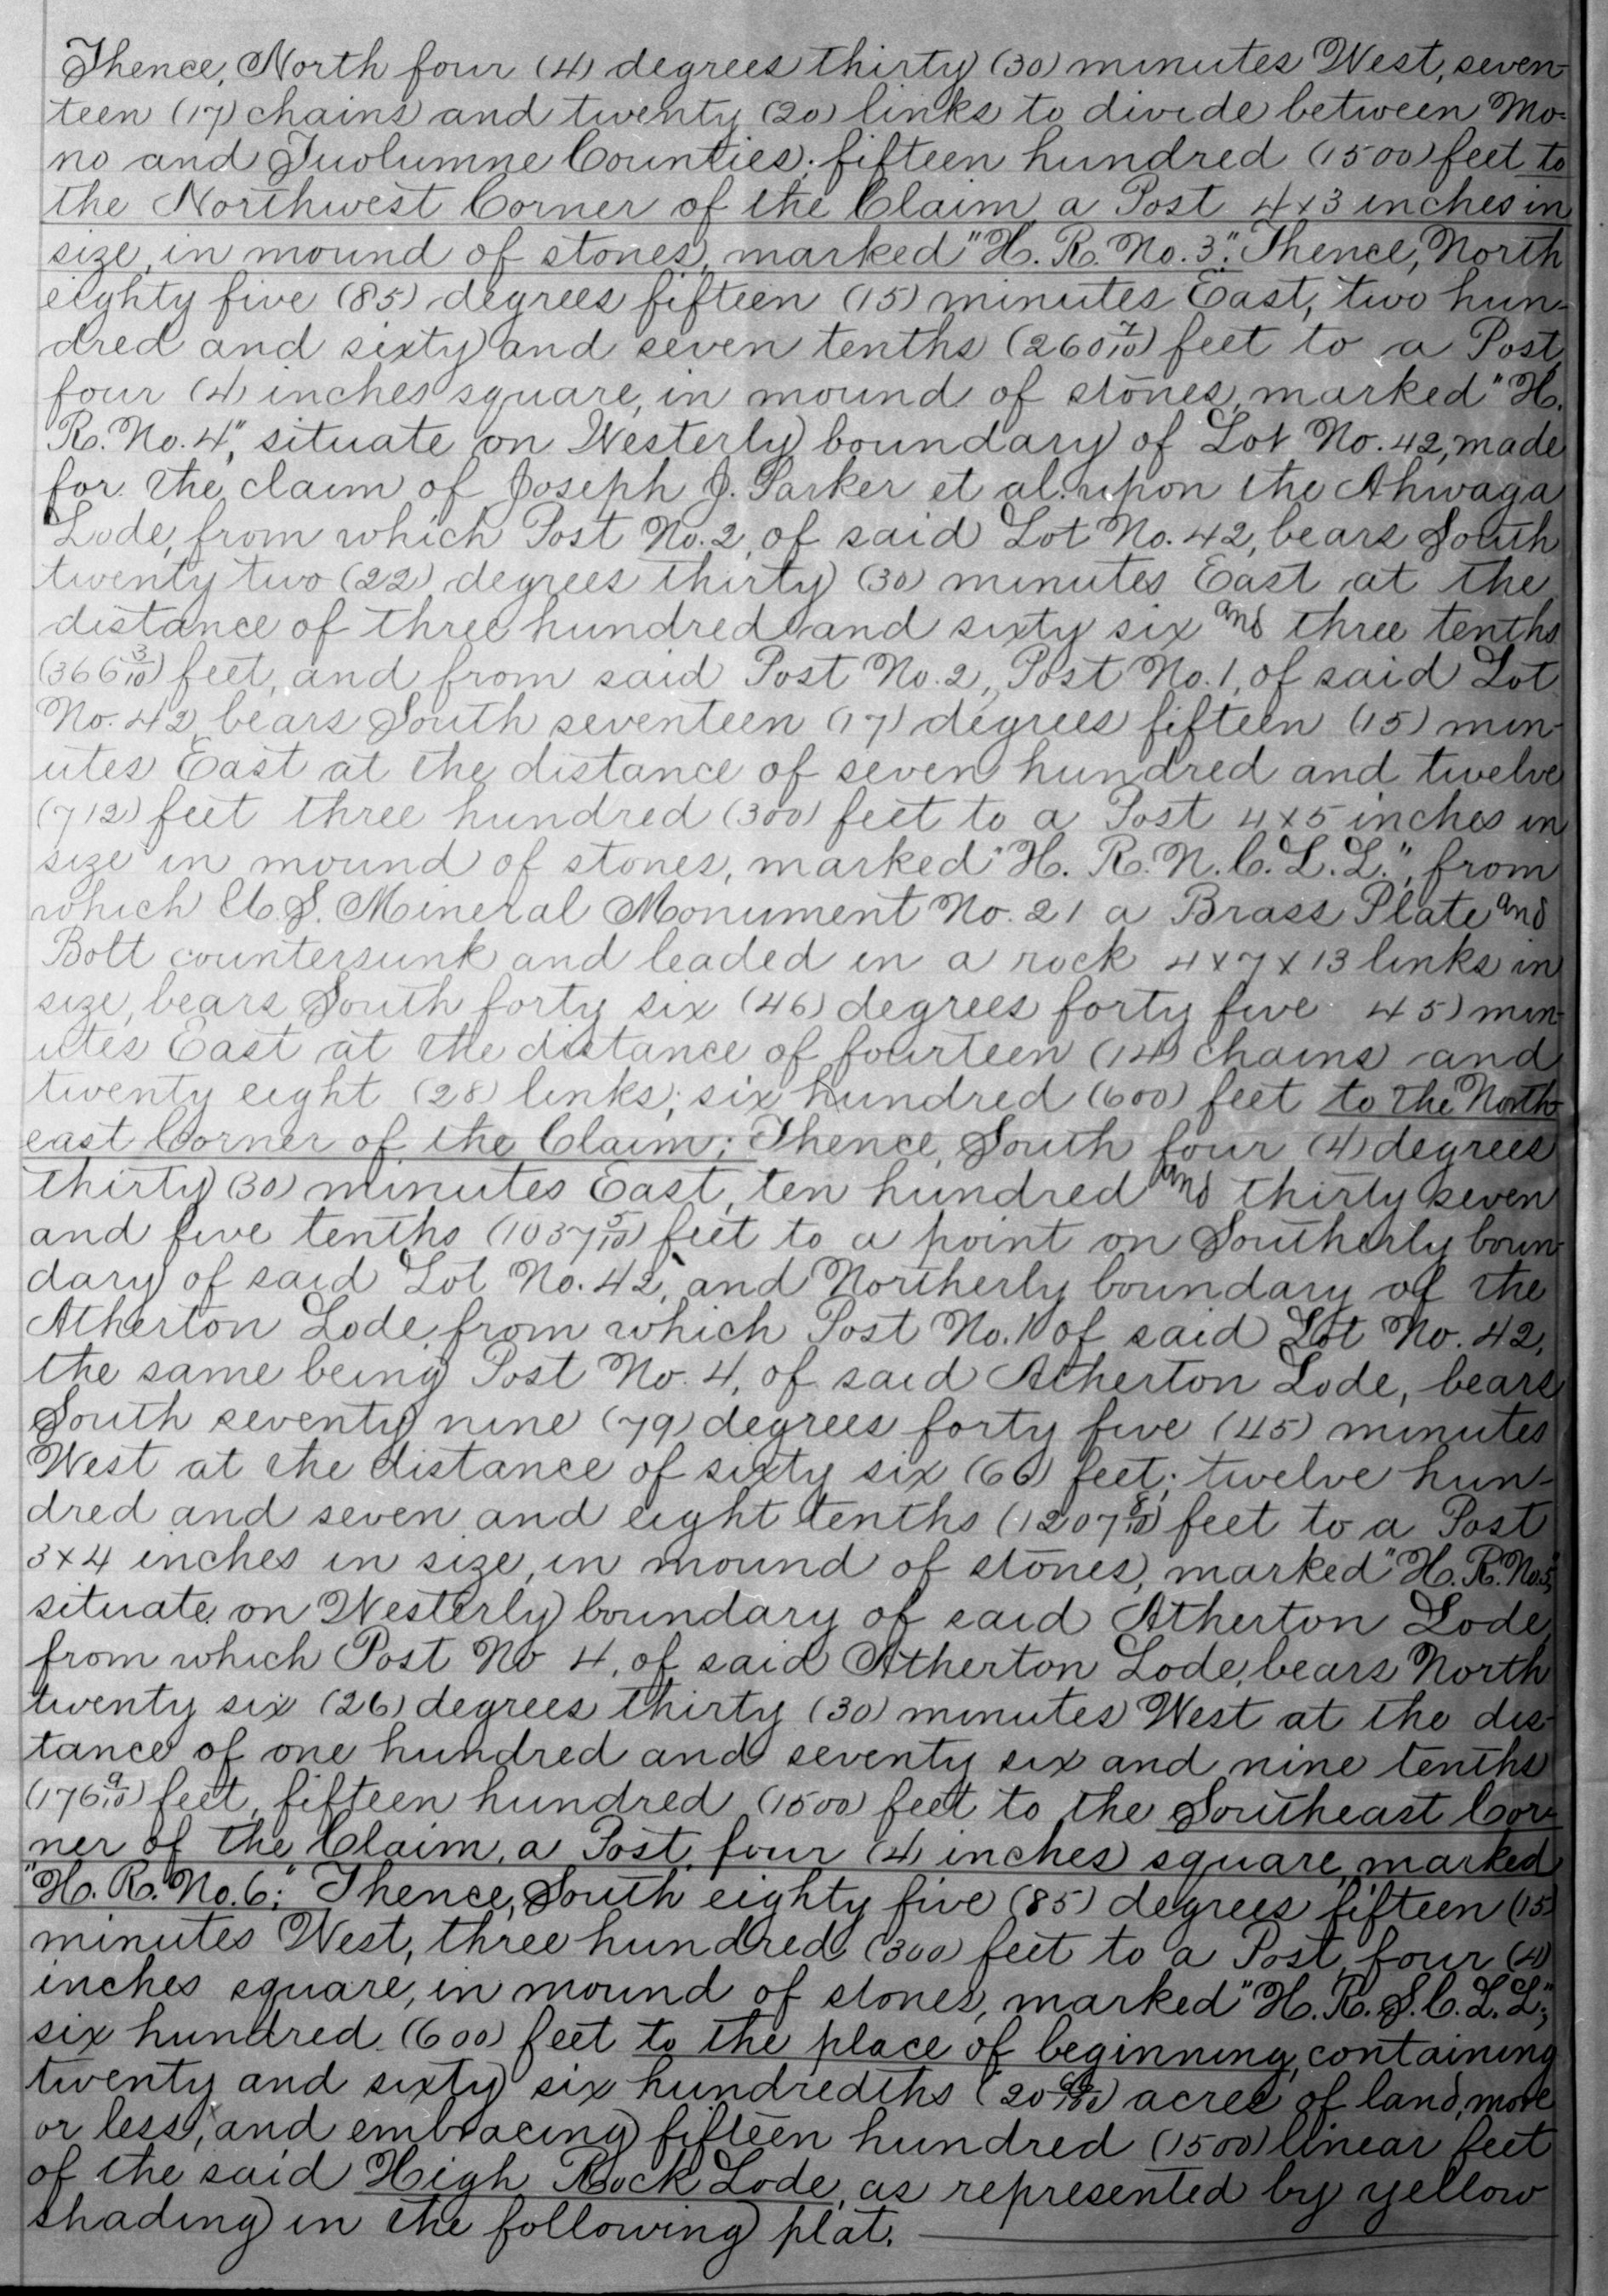 Thence, North four (4) degrees thirty (30) minutes West, seven-
teen (17) chains and twenty (20) links to divide between Mo-
no and Tuolumne Counties; fifteen hundred (1500) feet to
the Northwest Corner of the Claim, a Post 4x3 inches in
size, in mound of stones, marked "H. R. No. 3." Thence, North
eighty five (85) degrees fifteen (15) minutes East, two hun-
dred and sixty and seven tenths (260 7/10) feet to a Post,
four (4) inches square, in mound of stones, marked "H.
R. No. 4", situate on Westerly boundary of Lot No. 42, made
for the claim of Joseph J. Parker et al. upon the Ahwaga
Lode, from which Post No. 2, of said Lot No. 42, bears South
twenty two (22) degrees thirty (30) minutes East at the
distance of three hundred and sixty six and three tenths
(366 3/10) feet, and from said Post No. 2, Post No. 1, of said Lot
No. 42, bears South seventeen (17) degrees fifteen (15) min-
utes East at the distance of seven hundred and twelve
(712) feet three hundred (300) feet to a Post 4x5 inches in
size in mound of stones, marked "H. R. N. C. L. L.", from
which U.S. Mineral Monument No. 21 a Brass Plate and
Bolt countersunk and leaded in a rock 4x7x13 links in
size, bears South forty six (46) degrees forty five 45) min-
utes East at the distance of fourteen (14) chains and
twenty eight (28) links; six hundred (600) feet to the North-
east Corner of the Claim; Thence, South four (4) degrees
thirty (30) minutes East, ten hundred and thirty seven
and five tenths (1037 5/10) feet to a point on Southerly boun-
dary of said Lot No. 42, and Northerly boundary of the
Atherton Lode, from which Post No. 1 of said Lot No. 42,
the same being Post No. 4, of said Atherton Lode, bears
South seventy nine (79) degrees forty five (45) minutes
West at the distance of sixty six (66) feet; twelve hun-
dred and seven and eight tenths (1207 8/10) feet to a Post
3x4 inches in size, in mound of stones, marked "H. R. No. 5,"
situate on Westerly boundary of said Atherton Lode,
from which Post No 4, of said Atherton Lode, bears North
twenty six (26) degrees thirty (30) minutes West at the dis-
tance of one hundred and seventy six and nine tenths
(176 9/10) feet, fifteen hundred (1500) feet to the Southeast Cor-
ner of the Claim, a Post, four (4) inches square, marked
"H. R. No. 6;" Thence, South eighty five (85) degrees fifteen (15)
minutes West, three hundred (300) feet to a Post, four (4)
inches square, in mound of stones, marked "H. R. S. C. L. L.";
six hundred (600) feet to the place of beginning, containing
twenty and sixty six hundredths (20 66/100) acres of land, more
or less, and embracing fifteen hundred (1500) linear feet
of the said High Rock Lode, as represented by yellow
shading in the following plat.